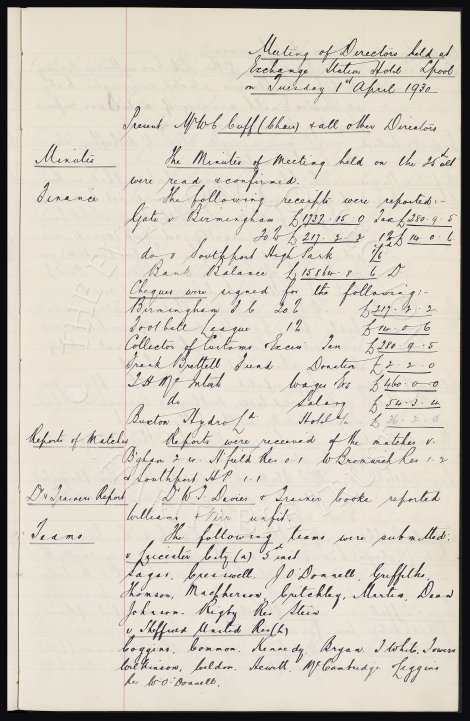 Meeting of Directors held at
Exchange Station Hotel Lpool
on Tuesday 1st April 1930
Present Mr W C Cuff (Chair) & all other Directors
Minutes The Minutes of Meeting held on the 25th ult
were read & confirmed.
Finance The following receipts were reported:-
Gate v Birmingham £1737.15.0 Tax £280.9.5
20% £217.2.2 1% £14.0.6
do v Southport High Park 1/6
Bank Balance £15864.8.6 D
Cheques were signed for the following:-
Birmingham F C 20% £217.2.2
Football League 1% £14.0.6
Collector of Customs & Excise Tax £280.9.5
Frank Brettell Fund Donation £2.2.0
T H McIntosh Wages &c £460.0.0
do Salary £54.3.4
Buxton Hydro Ld Hotel a/c £36.2.0
Reports of Matches Reports were received of the matches v.
B'gham 2.4. H'field Res 0.1 W Bromwich Res 1.2
& Southport H P 1.1
Dr & Trainers Report Dr W T Davies & Trainer Cooke reported
Williams & Kerr unfit.
Teams The following teams were submitted:
v Leicester City (a) 5th inst
Sagar. Cresswell. J O'Donnell. Griffiths.
Thomson. Macpherson. Critchley. Martin. Dean
Johnson. Rigby Res Stein
v Sheffield United Res (h)
Coggins. Common. Kennedy. Bryan. T White. Towers
Wilkinson. Weldon. Hewitt. McCambridge Leggins
Res W O'Donnell.